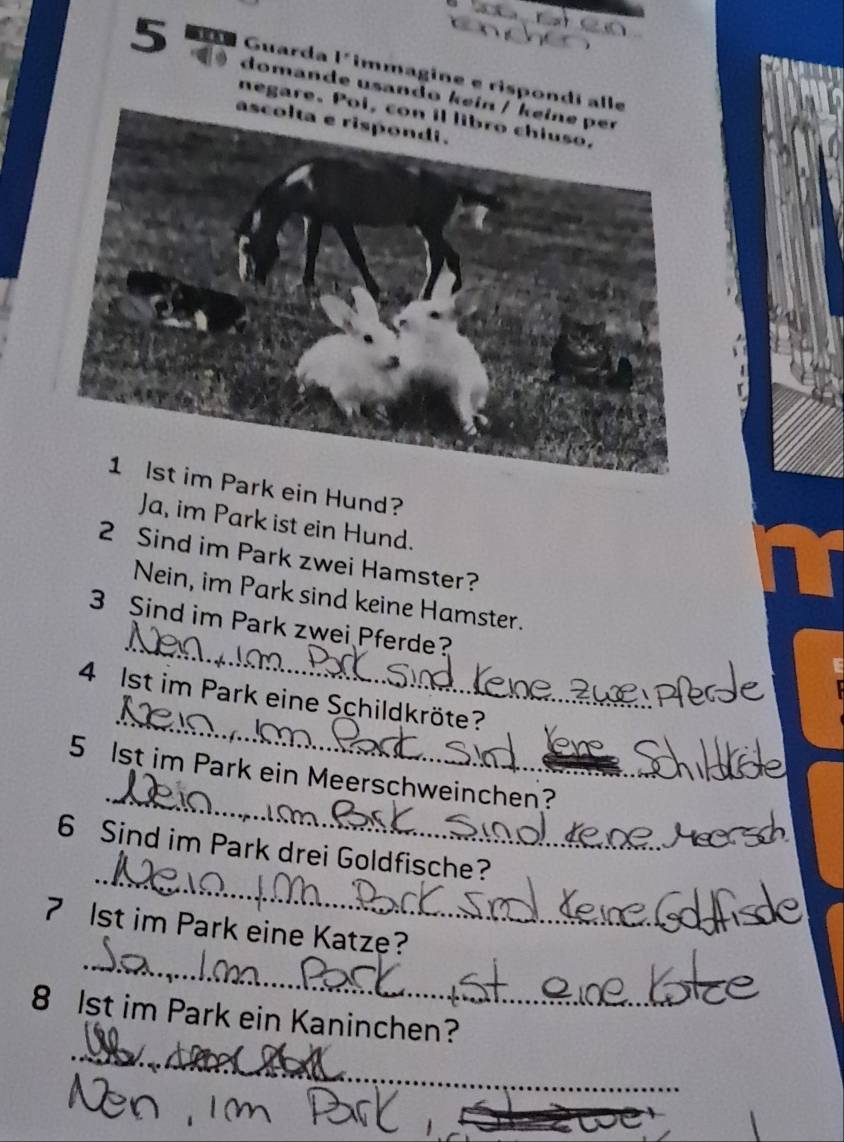 enchen
5 Guarda l'immagine e rispondi alle
domande usando kein / keine per
negare. Poi, con il libro chiuso,
ascolta e rispondi.
1 Ist im Park ein Hund?
Ja, im Park ist ein Hund.
2 Sind im Park zwei Hamster?
Nein, im Park sind keine Hamster.
3 Sind im Park zwei Pferde?
Nein, im Park sind kene zwei Pferde
4 Ist im Park eine Schildkröte?
Nein, im Park sind kene Schildkröte
5 Ist im Park ein Meerschweinchen?
Nein, im Park sind kene Meersch.
6 Sind im Park drei Goldfische?
Nein im Park sind keine Goldfische
7 Ist im Park eine Katze?
Ja, im Park ist eine Katze
8 Ist im Park ein Kaninchen?
Nen, im Park,